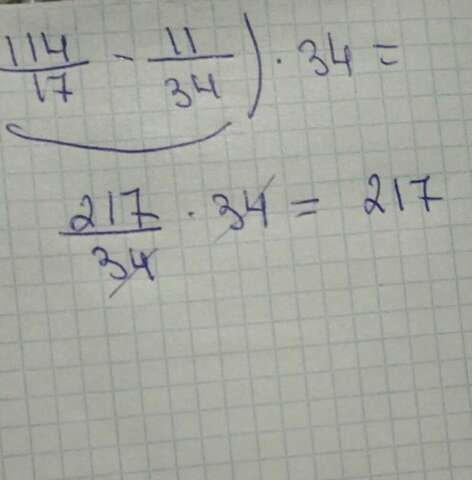 114/17 - 11/34) · 34 =
217/34 · 34 = 217